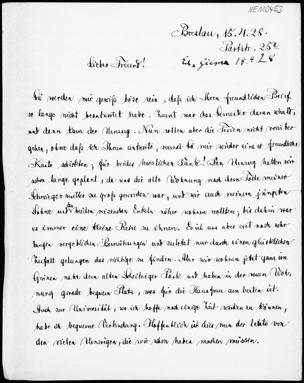 Breslau, 15.4.28.
Parkstr. 25
Lieber Freund!
Sie werden mir gewiss böse sein, dass ich Ihren freundlichen Brief
so lange nicht beantwortet habe. Zuerst war das Semester daran schuld,
und dann kam der Umzug. Nun sollen aber die Ferien nicht vorüber
gehen, ohne dass ich Ihnen antworte, zumal Sie mir wieder eine so freundliche
Karte schickten, für beides herzlichen Dank! Den Umzug hatten wir
schon lange geplant, da uns die alte Wohnung nach dem Tode meiner
Schwiegermutter zu gross geworden war, und wir auch meinem jüngsten
Sohne und beiden reizenden Enkeln näher wohnen wollten; bis dahin war
es immer eine kleine Reise zu ihnen. Es ist uns aber erst nach sehr
langen vergeblichen Bemühungen und zuletzt nur durch einen glücklichen
Zufall gelungen das richtige zu finden. Aber wir wohnen jetzt ganz im
Grünen nahe dem alten Scheitniger Park und haben in der neuen Woh-
nung gerade bequem Platz, was für die Hausfrau am besten ist.
Auch zur Universität, wo ich hoffe noch einige Zeit wirken zu können,
habe ich bequeme Verbindung. Hoffentlich ist dies nun der letzte von
den vielen Umzügen, die wir schon haben machen müssen.